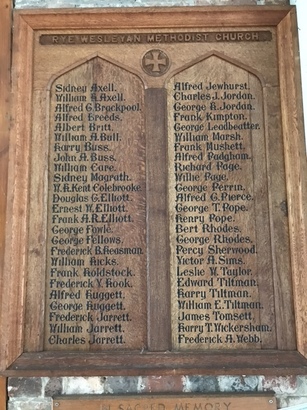 RYE WESLEYAN METHODIST CHURCH
Sidney Axell.
William A. Axell.
Alfred G. Brackpool.
Alfred Breeds.
Albert Britt.
William A. Bull.
Harry Buss.
John A. Buss.
William Care.
Sidney Magrath.
W. A. Kent Colebrooke.
Douglas G. Elliott.
Ernest W. Elliott.
Frank A. R. Elliott.
George Fowle.
George Fellows.
Frederick B. Heasman.
William Hicks.
Frank Holdstock.
Frederick Y. Hook.
Alfred Huggett.
George Huggett.
Frederick Jarrett.
William Jarrett.
Charles Jarrett.
Alfred Jewhurst.
Charles J. Jordan.
George A. Jordan.
Frank Kimpton.
George Leadbeatter.
William Marsh.
Frank Mushett.
Alfred Padgham.
Richard Page.
Willie Page.
George Perrin.
Alfred G. Pierce.
George T. Pope.
Henry Pope.
Bert Rhodes.
George Rhodes.
Percy Sherwood.
Victor A. Sims.
Leslie W. Taylor.
Edward Tiltman.
Harry Tiltman.
William E. Tiltman.
James Tomsett.
Harry T. Wickersham.
Frederick A. Webb.
IN SACRED MEMORY